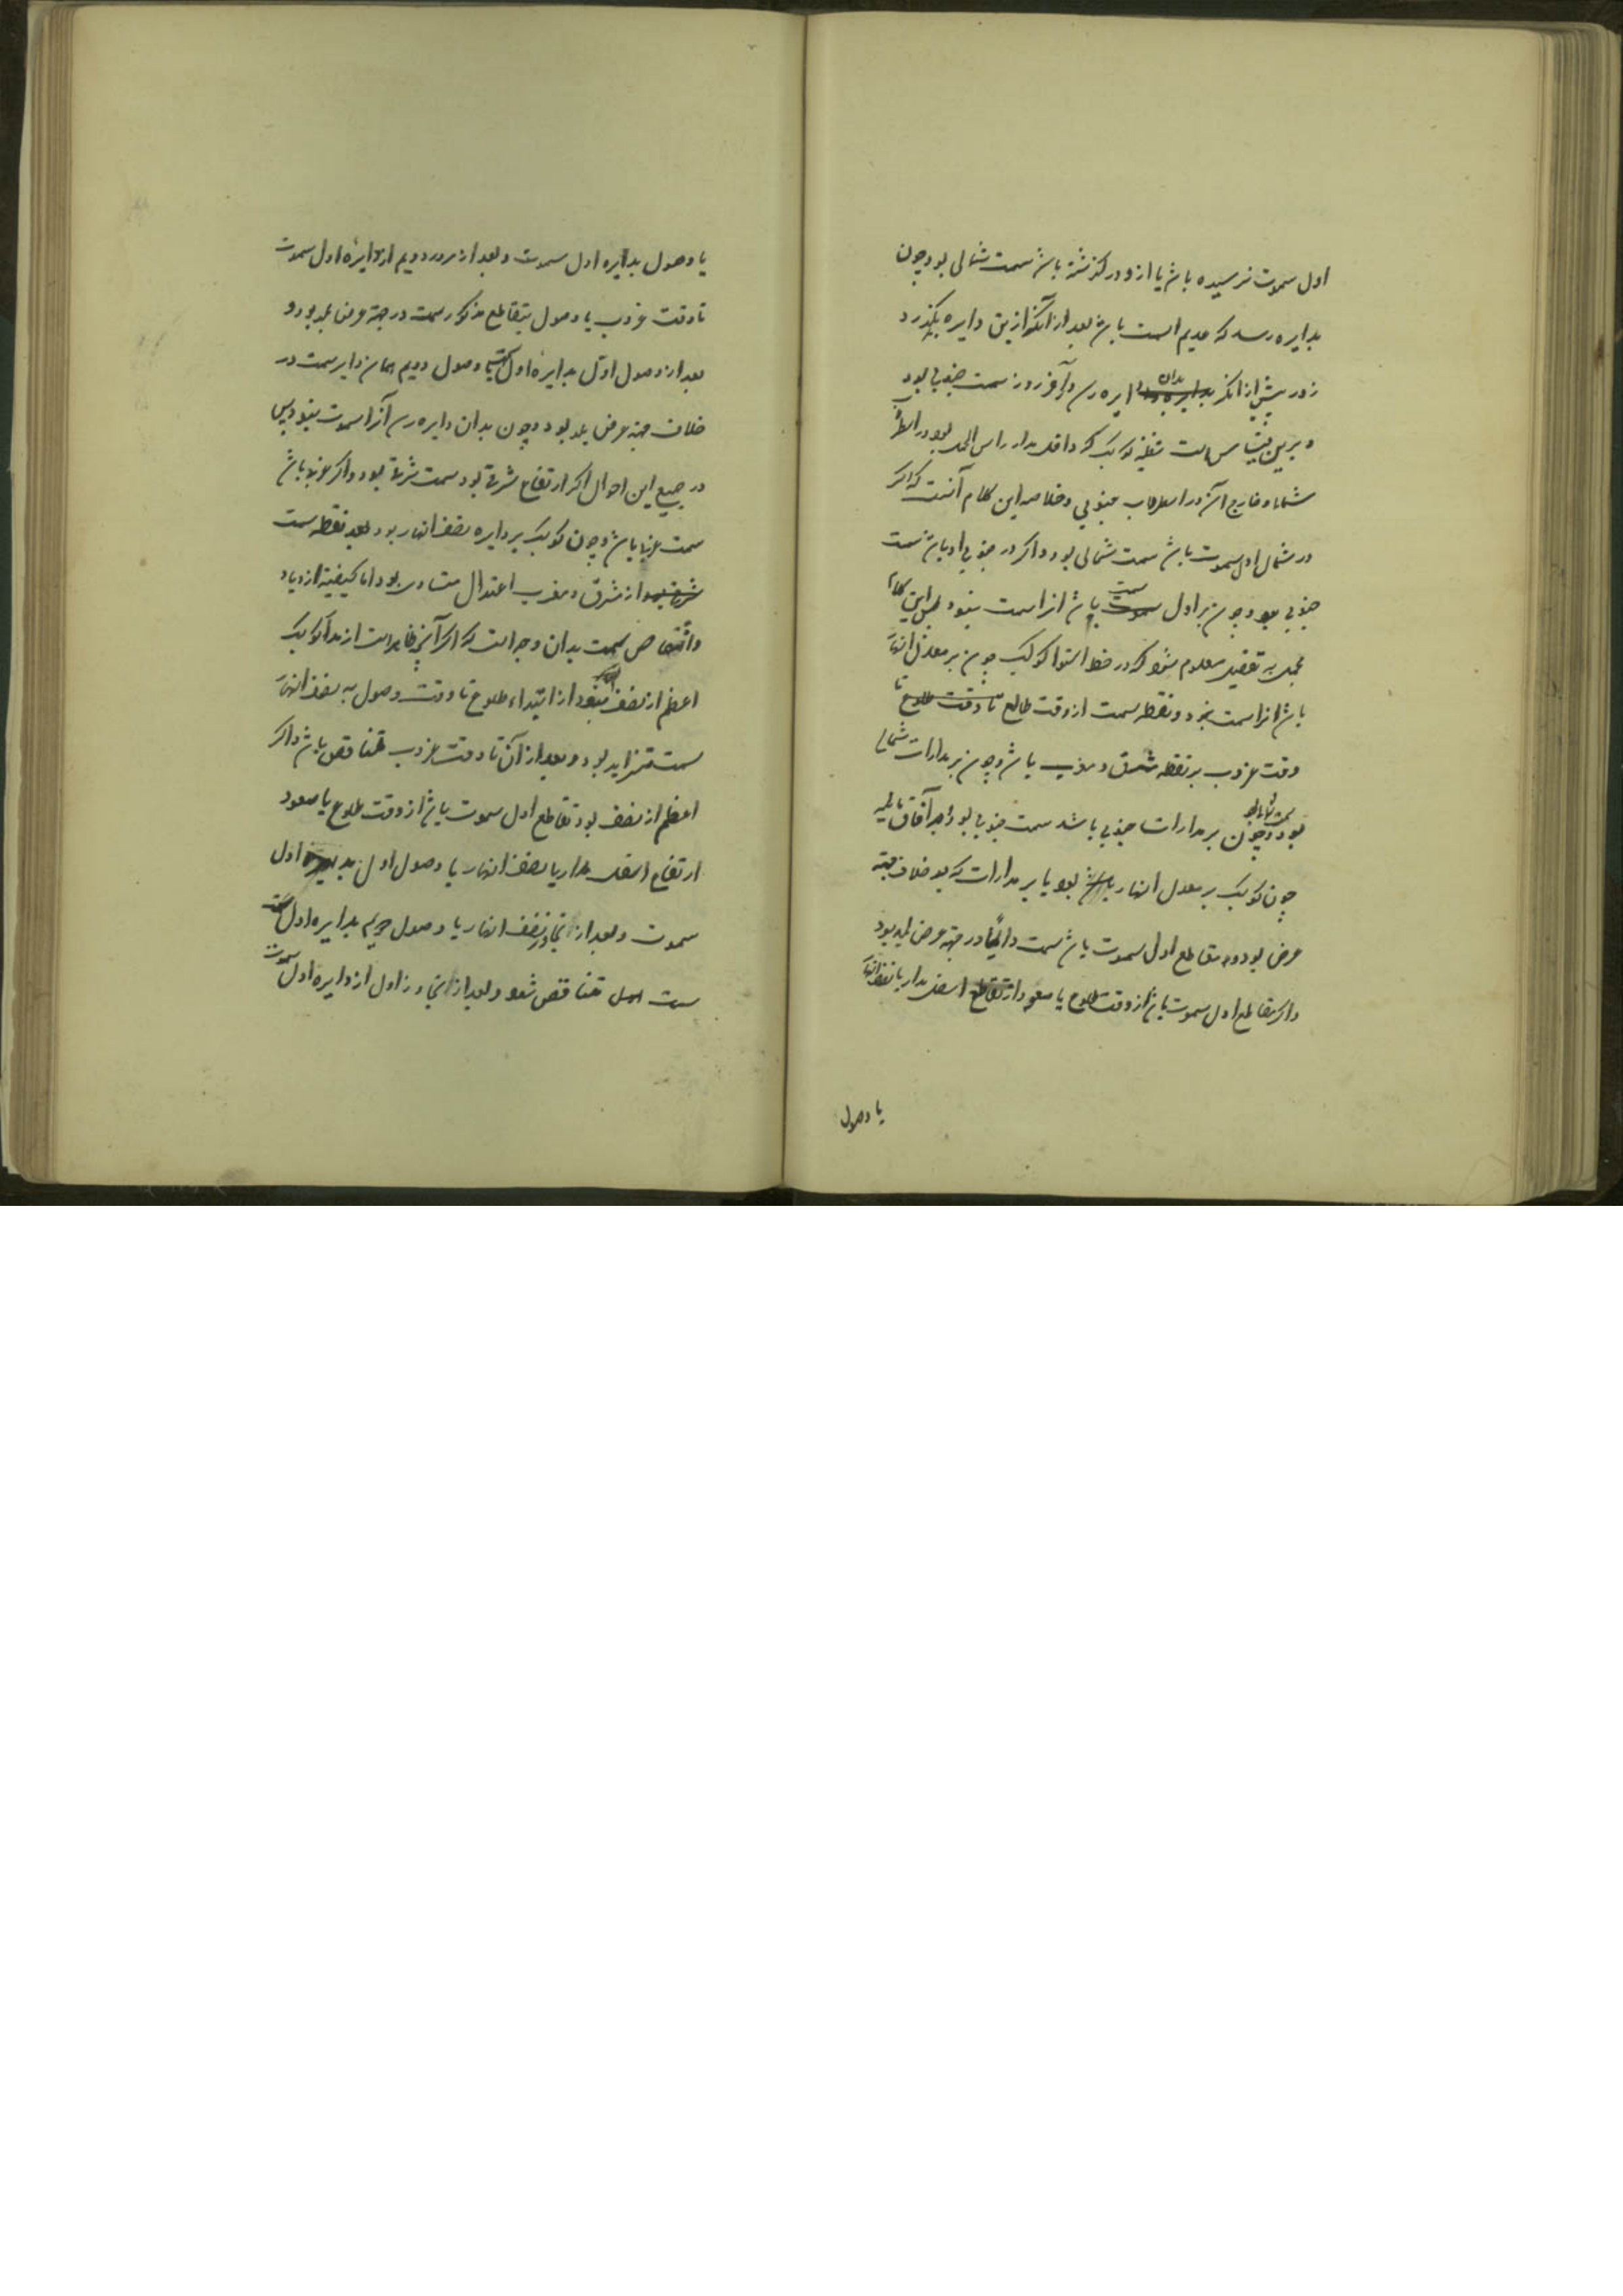 اول سموت نرسیده باشد یا ازو در گذشته باشد سمت شمالی بود و چون
بدایره رسد که عدیم السمت باشد بعد از آنکه ازین دایره بگذرد
روز پیش از آنکه بدان دایره رسد و آخر روز سمت جنوبی بود
و برین قیاس است کوکب که واقف مدار راس الحمل بود در اسطرلاب
شمالی و خارج آن در اسطرلاب جنوبی و خلاصه این کلام آنست که اگر
در شمال اول سموت باشد سمت شمالی بود و اگر در جنوبی او باشد سمت
جنوبی بود و چون بر اول سموت باشد انرا سمت نبود پس ازین کلام
مجمل به تفصیل معلوم شود که در خط استوا کوکب چون بر معدل النهار
باشد انرا سمت نبود و نقطه سمت از وقت طالع تا وقت طلوع تا
وقت غروب بر نقطه مشرق و مغرب باشد و چون بر مدارات شمالی
بود سمت شمالی بود و چون بر مدارات جنوبی باشد سمت جنوبی بود و در آفاق مایله
چون کوکب بر معدل النهار باشد بود یا بر مدارات که بود خلاف جهة
عرض بود و نه مقاطع اول سموت باشد سمت دائما در جهة عرض بلد بود
و اگر مقاطع اول سموت باشد از وقت طلوع یا صعود از تقاطع اسفل مدار با نصف النهار
یا وصول
یا وصول بدایره اول سموت و بعد از مرور دویم از دایره اول سموت
تا وقت غروب یا وصول بتقاطع مذکور سمت در جهة عرض بلد بود و
بعد از وصول اول بدایره اول سموت تا وصول دویم همان دایر سمت در
خلاف جهة عرض بلد بود و چون بدان دایره رسد آنرا سموت نبود و پس
در جمیع این احوال اگر ارتفاع شرقی بود سمت شرقی بود و اگر غربی باشد
سمت غربی باشد و چون کوکب بر دایره نصف النهار بود بعد نقطه سمت
از مشرق و مغرب اعتدال متساوی بود اما کیفیة ازدیاد
و انتقاص سمت بدان وجه است که اگر آنچه ظاهر است از مدار کوکب
اعظم از نصف نبود از ابتداء طلوع تا وقت وصول به نصف النهار
سمت متزاید بود و بعد از آن تا وقت غروب متناقص باشد و اگر
اعظم از نصف بود تقاطع اول سموت باشد از وقت طلوع یا صعود
ارتفاع اسفل مدار با نصف النهار یا وصول اول بدایره اول
سموت و بعد از تجاوز نصف النهار یا وصول دویم بدایره اول سموت
سمت متناقص شود و بعد از تجاوز اول از دایره اول سموت